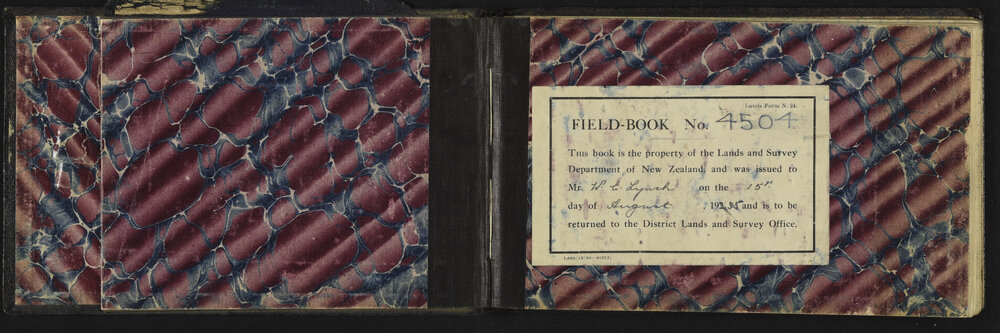 Lands Form N. 24.
FIELD-BOOK No. 4504
This book is the property of the Lands and Survey
Department of New Zealand, and was issued to
Mr. W C Lynch on the 15th
day of August, 1935 and is to be
returned to the District Lands and Survey Office.